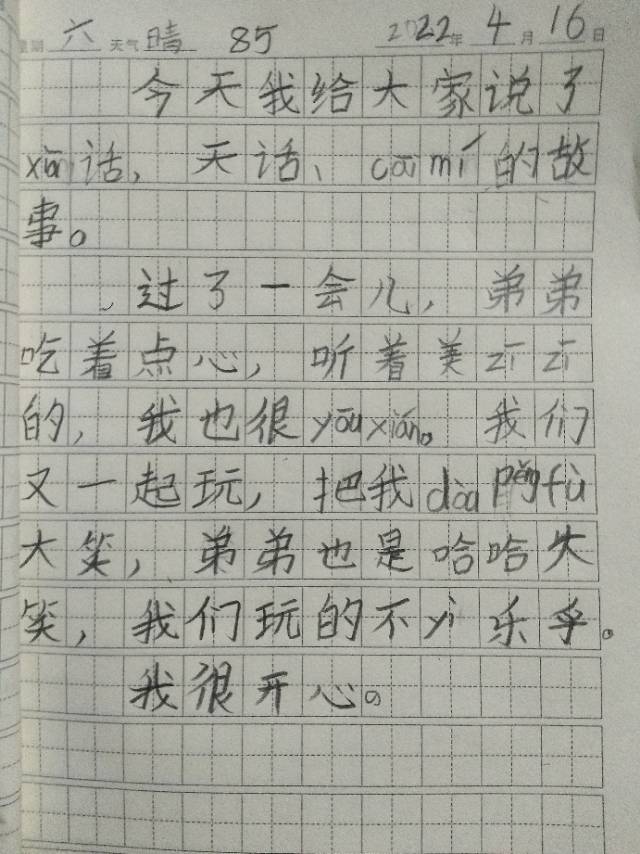 星期六 天气晴 85 2022年4月16日
今天我给大家说了
xiào话，天话、cāi mí的故
事。
过了一会儿，弟弟
吃着点心，听着美zī zī
的，我也很yōu xián。我们
又一起玩，把我dòu pěng fù
大笑，弟弟也是哈哈大
笑，我们玩的不yì乐乎。
我很开心。